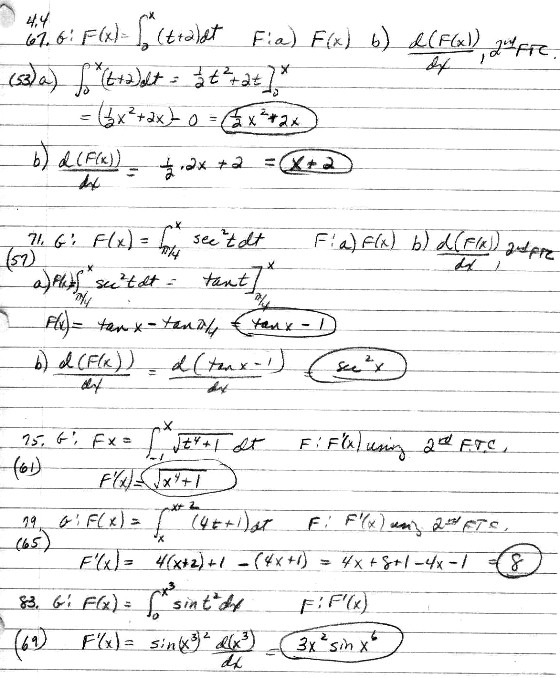 4.4
67. G: F(x) = ∫₀ˣ (t+2)dt F: a) F(x) b) d(F(x))/dx, 2nd FTC.
(53) a) ∫₀ˣ (t+2)dt = ½t² + 2t]₀ˣ
= (½x² + 2x) - 0 = ½x² + 2x
b) d(F(x))/dx = ½·2x + 2 = x + 2
71. G: F(x) = ∫_{π/4}^x sec²t dt F: a) F(x) b) d(F(x))/dx, 2nd FTC
(57)
a) F(x) = ∫_{π/4}^x sec²t dt = tan t]_{π/4}^x
F(x) = tan x - tan π/4 = tan x - 1
b) d(F(x))/dx = d(tan x - 1)/dx = sec²x
75. G: Fx = ∫_{-1}^x √(t⁴+1) dt F: F'(x) using 2nd F.T.C.
(61)
F'(x) = √(x⁴+1)
79. G: F(x) = ∫_x^{x+2} (4t+1)dt F: F'(x) using 2nd FTC.
(65)
F'(x) = 4(x+2)+1 - (4x+1) = 4x+8+1-4x-1 = 8
83. G: F(x) = ∫₀^{x³} sin t² dx F: F'(x)
(69) F'(x) = sin(x³)² d(x³)/dx = 3x² sin x⁶